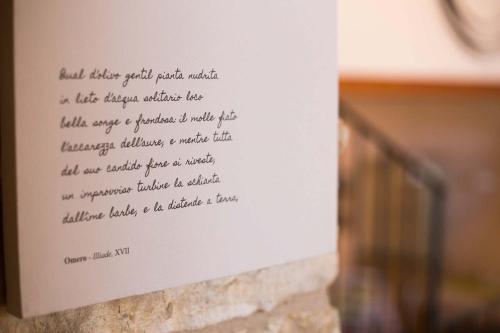 Qual d'olivo gentil pianta nudrita
in lieto d'acqua solitario loco
bella sorge e frondosa: il molle fiato
l'accarezza dell'aure, e mentre tutta
del suo candido fiore si riveste,
un improvviso turbine la schianta
dall'ime barbe, e la distende a terra;
Omero - Iliade, XVII